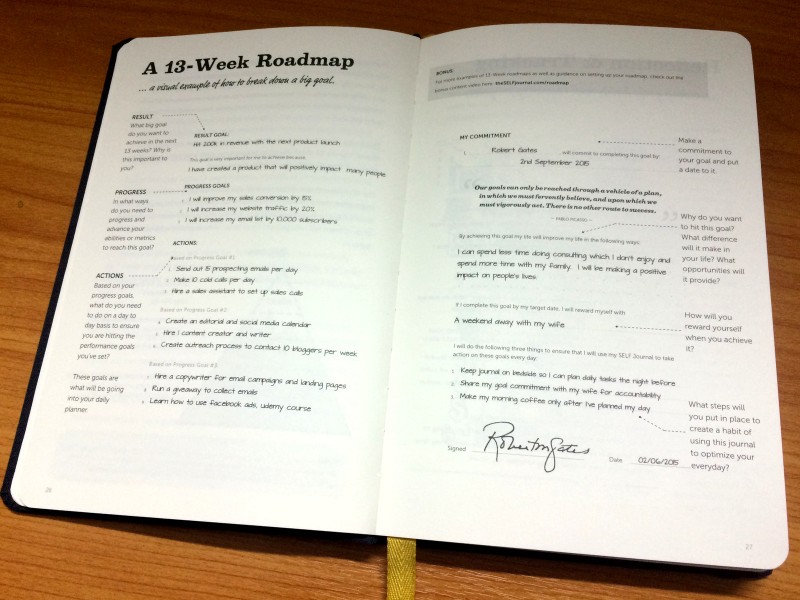 A 13-Week Roadmap
... a visual example of how to break down a big goal.
RESULT
What big goal
do you want to
achieve in the next
13 weeks? Why is
this important to
you?
RESULT GOAL:
Hit 200k in revenue with the next product launch
This goal is very important for me to achieve because
I have created a product that will positively impact many people
PROGRESS
In what ways
do you need to
progress and
advance your
abilities or metrics
to reach this goal?
PROGRESS GOALS
1. I will improve my sales conversion by 15%
2. I will increase my website traffic by 20%
3. I will increase my email list by 10,000 subscribers
ACTIONS:
Based on Progress Goal #1
1. Send out 15 prospecting emails per day
2. Make 10 cold calls per day
3. Hire a sales assistant to set up sales calls
ACTIONS
Based on your
progress goals,
what do you need
to do on a day to
day basis to ensure
you are hitting the
performance goals
you've set?
Based on Progress Goal #2
1. Create an editorial and social media calendar
2. Hire 1 content creator and writer
3. Create outreach process to contact 10 bloggers per week
Based on Progress Goal #3
1. Hire a copywriter for email campaigns and landing pages
2. Run a giveaway to collect emails
3. Learn how to use facebook ads, udemy course
These goals are
what will be going
into your daily
planner.
26
BONUS:
For more examples of 13-Week roadmaps as well as guidance on setting up your roadmap, check out the
bonus content video here: theSELFjournal.com/roadmap
MY COMMITMENT
I, Robert Gates will commit to completing this goal by:
2nd September 2015
Make a
commitment to
your goal and put
a date to it.
Our goals can only be reached through a vehicle of a plan,
in which we must fervently believe, and upon which we
must vigorously act. There is no other route to success.
— PABLO PICASSO —
By achieving this goal my life will improve my life in the following ways:
I can spend less time doing consulting which I don't enjoy and
spend more time with my Family. I will be making a positive
impact on people's lives.
Why do you want
to hit this goal?
What difference
will it make in
your life? What
opportunities will
it provide?
If I complete this goal by my target date, I will reward myself with
A weekend away with my wife
How will you
reward yourself
when you achieve
it?
I will do the following three things to ensure that I will use my SELF Journal to take
action on these goals every day:
1. Keep journal on bedside so I can plan daily tasks the night before
2. Share my goal commitment with my wife for accountability
3. Make my morning coffee only after I've planned my day
What steps will
you put in place to
create a habit of
using this journal
to optimize your
everyday?
Signed Robert M Gates Date 02/06/2015
27